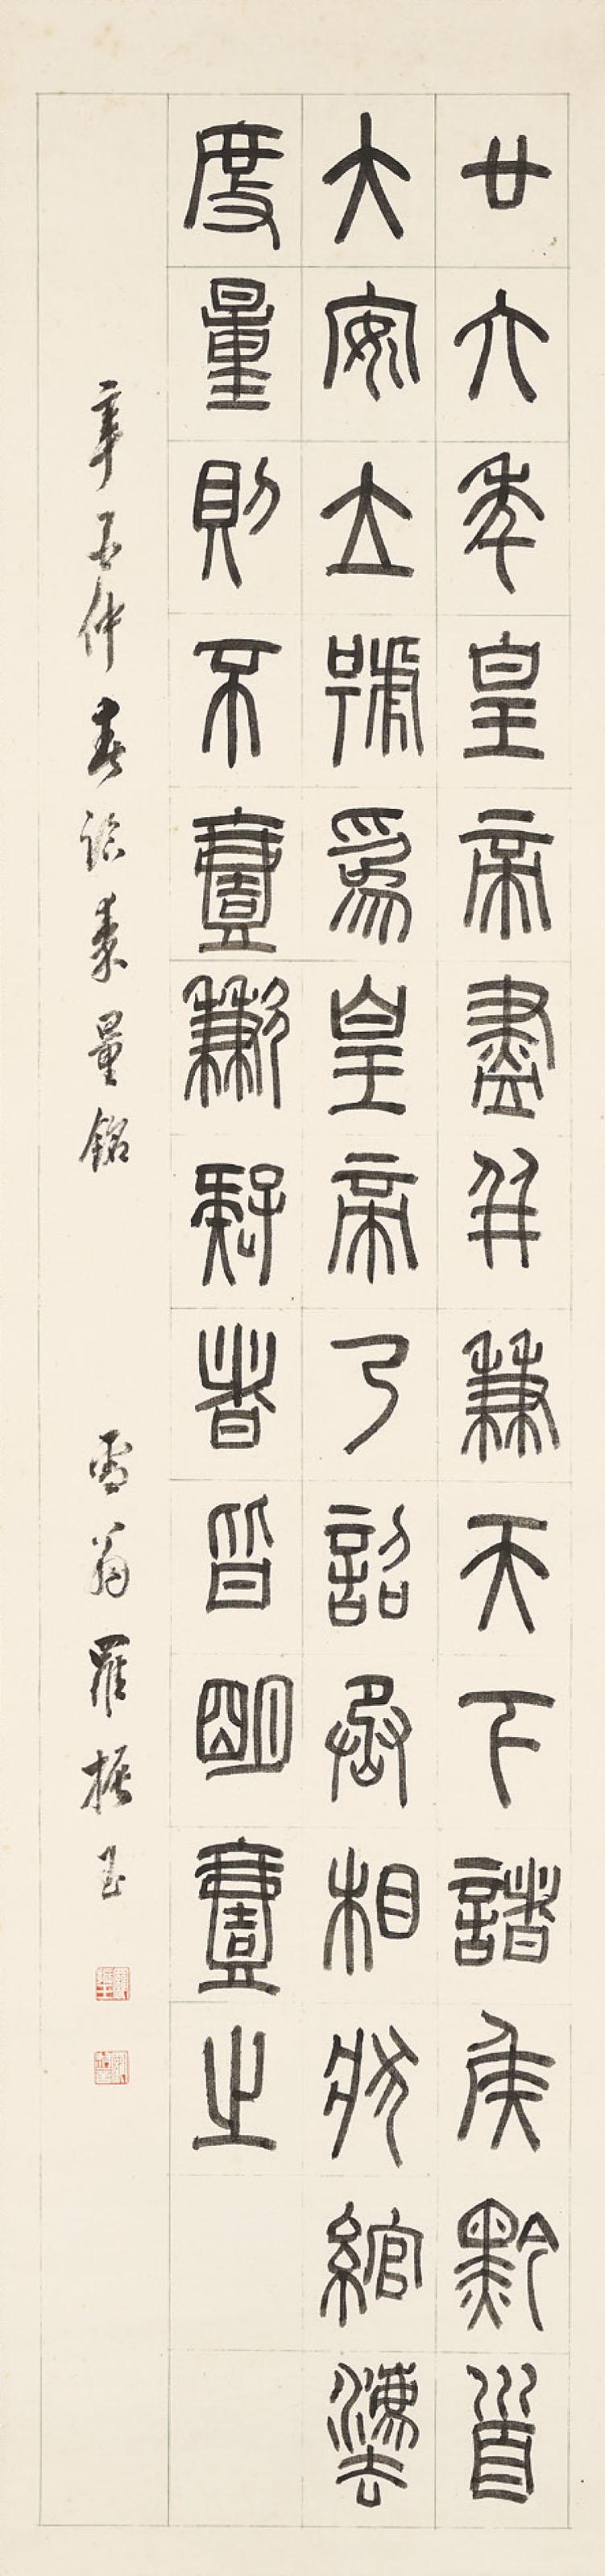 廿六年皇帝盡并兼天下諸侯黔首
大安立號爲皇帝乃詔丞相狀綰灋
度量則不壹歉疑者皆明壹之
辛仲春臨秦量銘 雪翁羅振玉